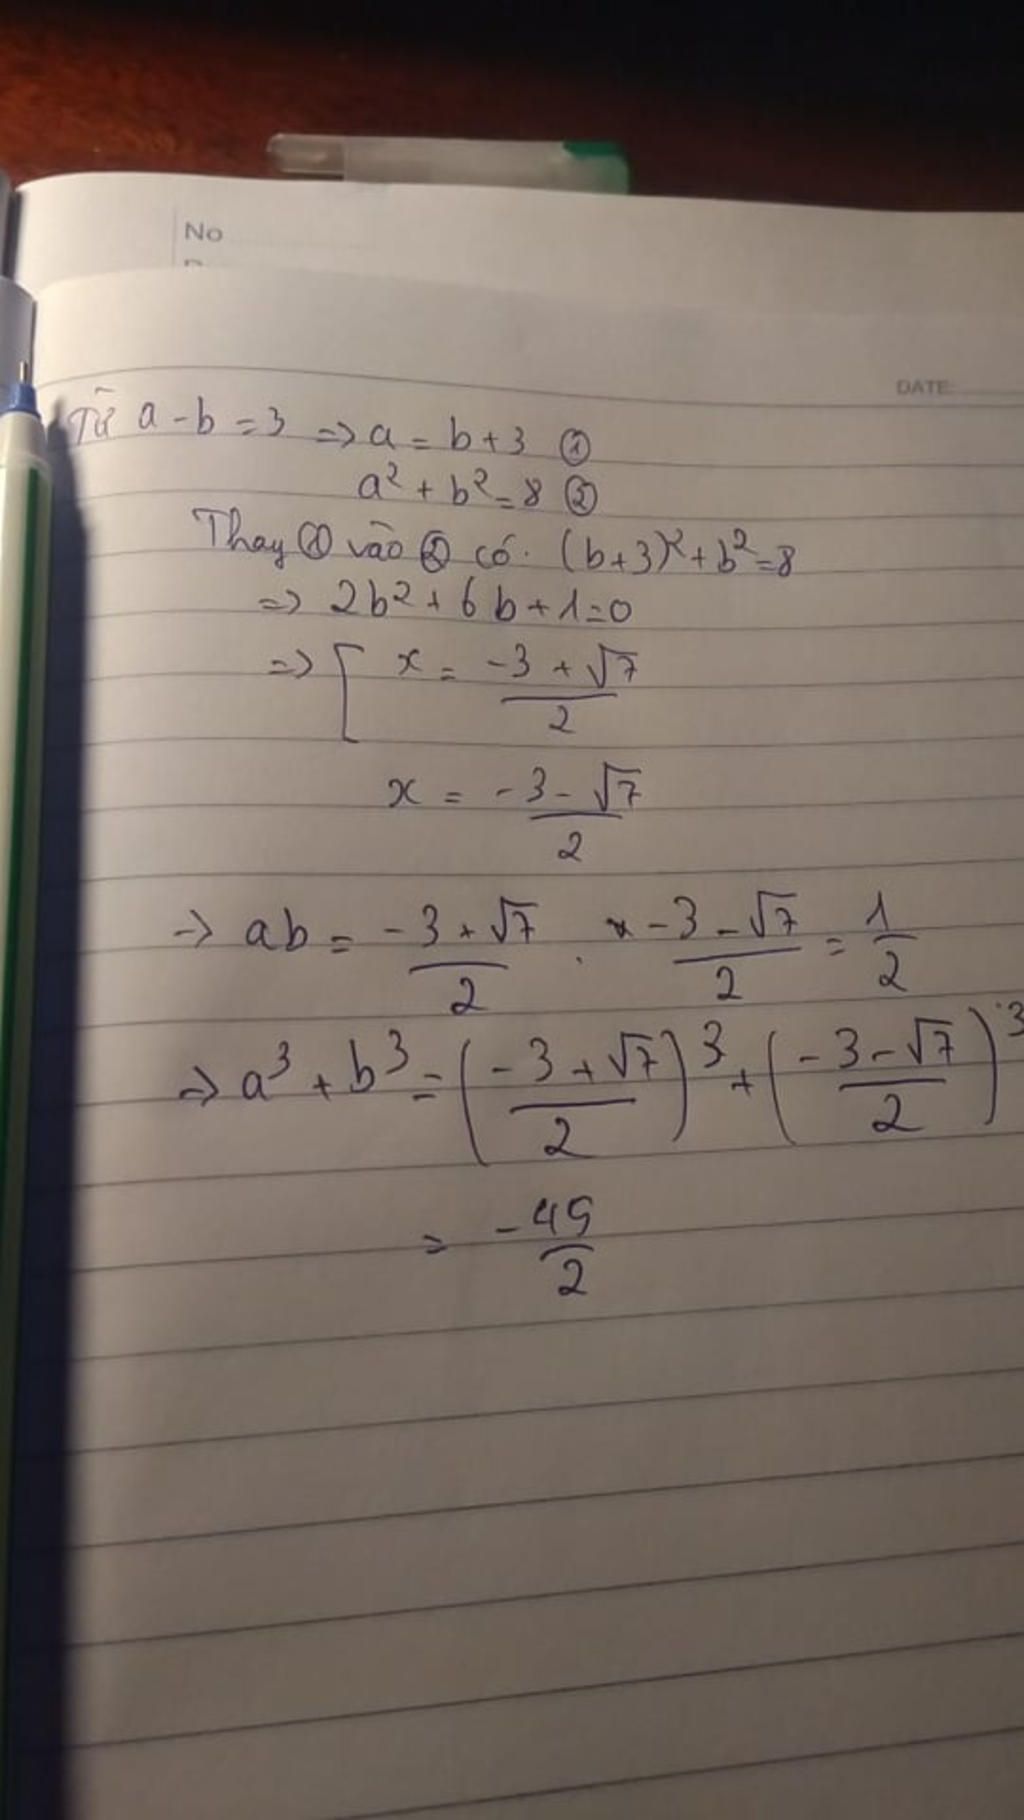 No
DATE:
Từ a - b = 3 => a = b + 3 ①
a² + b² = 8 ②
Thay ① vào ② có. (b+3)² + b² = 8
=> 2b² + 6b + 1 = 0
=> [ x = (-3 + √7)/2
x = (-3 - √7)/2
-> ab = (-3 + √7)/2 . (-3 - √7)/2 = 1/2
=> a³ + b³ = ((-3 + √7)/2)³ + ((-3 - √7)/2)³
= -45/2